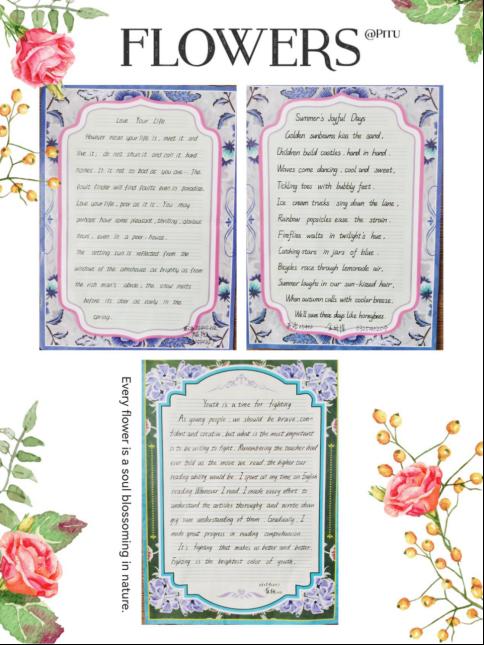 FLOWERS @PITU
Love Your Life
However mean your life is, meet it and
live it; do not shun it and call it hard
names. It is not so bad as you are. The
fault finder will find faults even in paradise.
Love your life, poor as it is. You may
perhaps have some pleasant, thrilling, glorious
hours, even in a poor-house.
The setting sun is reflected from the
windows of the almshouse as brightly as from
the rich man's abode; the snow melts
before its door as early in the
spring.
Summer's Joyful Days
Golden sunbeams kiss the sand,
Children build castles, hand in hand.
Waves come dancing, cool and sweet,
Tickling toes with bubbly feet.
Ice cream trucks sing down the lane,
Rainbow popsicles ease the strain.
Fireflies waltz in twilight's hue,
Catching stars in jars of blue.
Bicycles race through lemonade air,
Summer laughs in our sun-kissed hair,
When autumn calls with cooler breeze,
We'll save these days like honeybees
Youth is a time for fighting
As young people, we should be brave, con-
fident and creative, but what is the most important
is to be willing to fight. Remembering the teacher
ever told us the more we read, the higher our
reading ability would be. I spent all my time on
reading. Whenever I read, I made every effort to
understand the articles thoroughly and wrote down
my own understanding of them. Gradually, I
made great progress in reading comprehension.
It's fighting that makes us better and better.
Fighting is the brightest color of youth.
Every flower is a soul blossoming in nature.